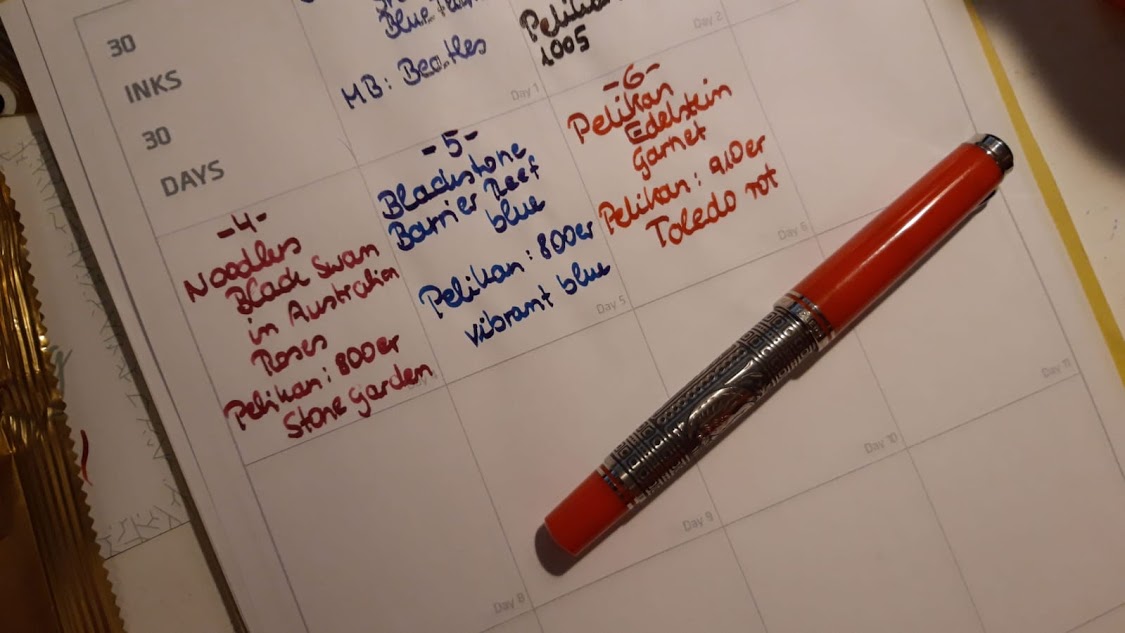 30
INKS
30
DAYS
Blue
MB: Beatles
Day 1
Pelikan
1005
Day 2
-4-
Noodlers
Black Swan
in Australian
Roses
Pelikan: 800er
Stone garden
-5-
Blackstone
Barrier Reef
blue
Pelikan: 800er
vibrant blue
Day 5
-6-
Pelikan
Edelstein
garnet
Pelikan: 910er
Toledo rot
Day 6
Day 8
Day 9
Day 10
Day 11